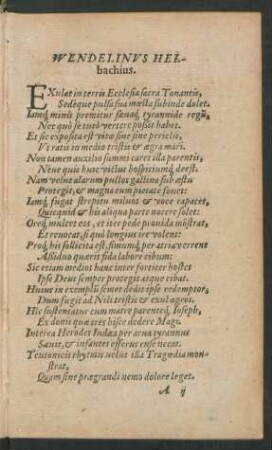 WENDELINVS HEL-
bachius.
EXulat in terris Ecclesia sacra Tonantis,
Sedéque pulsa sua mœsta subinde dolet.
Iamq́ minis premitur sæuaq́ tyrannide regũ,
Nec quò se tutò vertere possit habet.
Et sic exposita est vitæ sine fine periclis,
Vt ratis in medio tristis & ægra mari.
Non tamen auxilio summi caret illa parentis,
Néue quis huic victus hospitiumq́ deest.
Nam velut alarum pullos gallina sub æstu
Protegit, & magna cum pietate fouet:
Iamq́ fugat strepitu miluos & voce rapaces,
Quicquid & his aliqua parte nocere solet:
Oreq́ mulcet eos, et iter pede prouida mõstrat,
Et reuocat, si quò longius ire volent:
Proq́ his sollicita est, simumq́ per atria verrens
Assiduo quærit sida labore cibum:
Sic etiam medios hanc inter fortiter hostes
Ipse Deus semper protegit atque cibat.
Huius in exemplũ semet dedit ipse redemptor,
Dum fugit ad Nili tristis & exul agros.
Hic sustentatur cum matre parenteq́ Ioseph,
Ex donis quæ tres hisce dedere Magi.
Interea Herodes Iudæa per arua tyrannus
Sæuit, & infantes efferus ense necat.
Teutonicis rhytmis uelut illa Tragœdia mon-
strat,
Quam sine prægrandi nemo dolore leget.
A ij